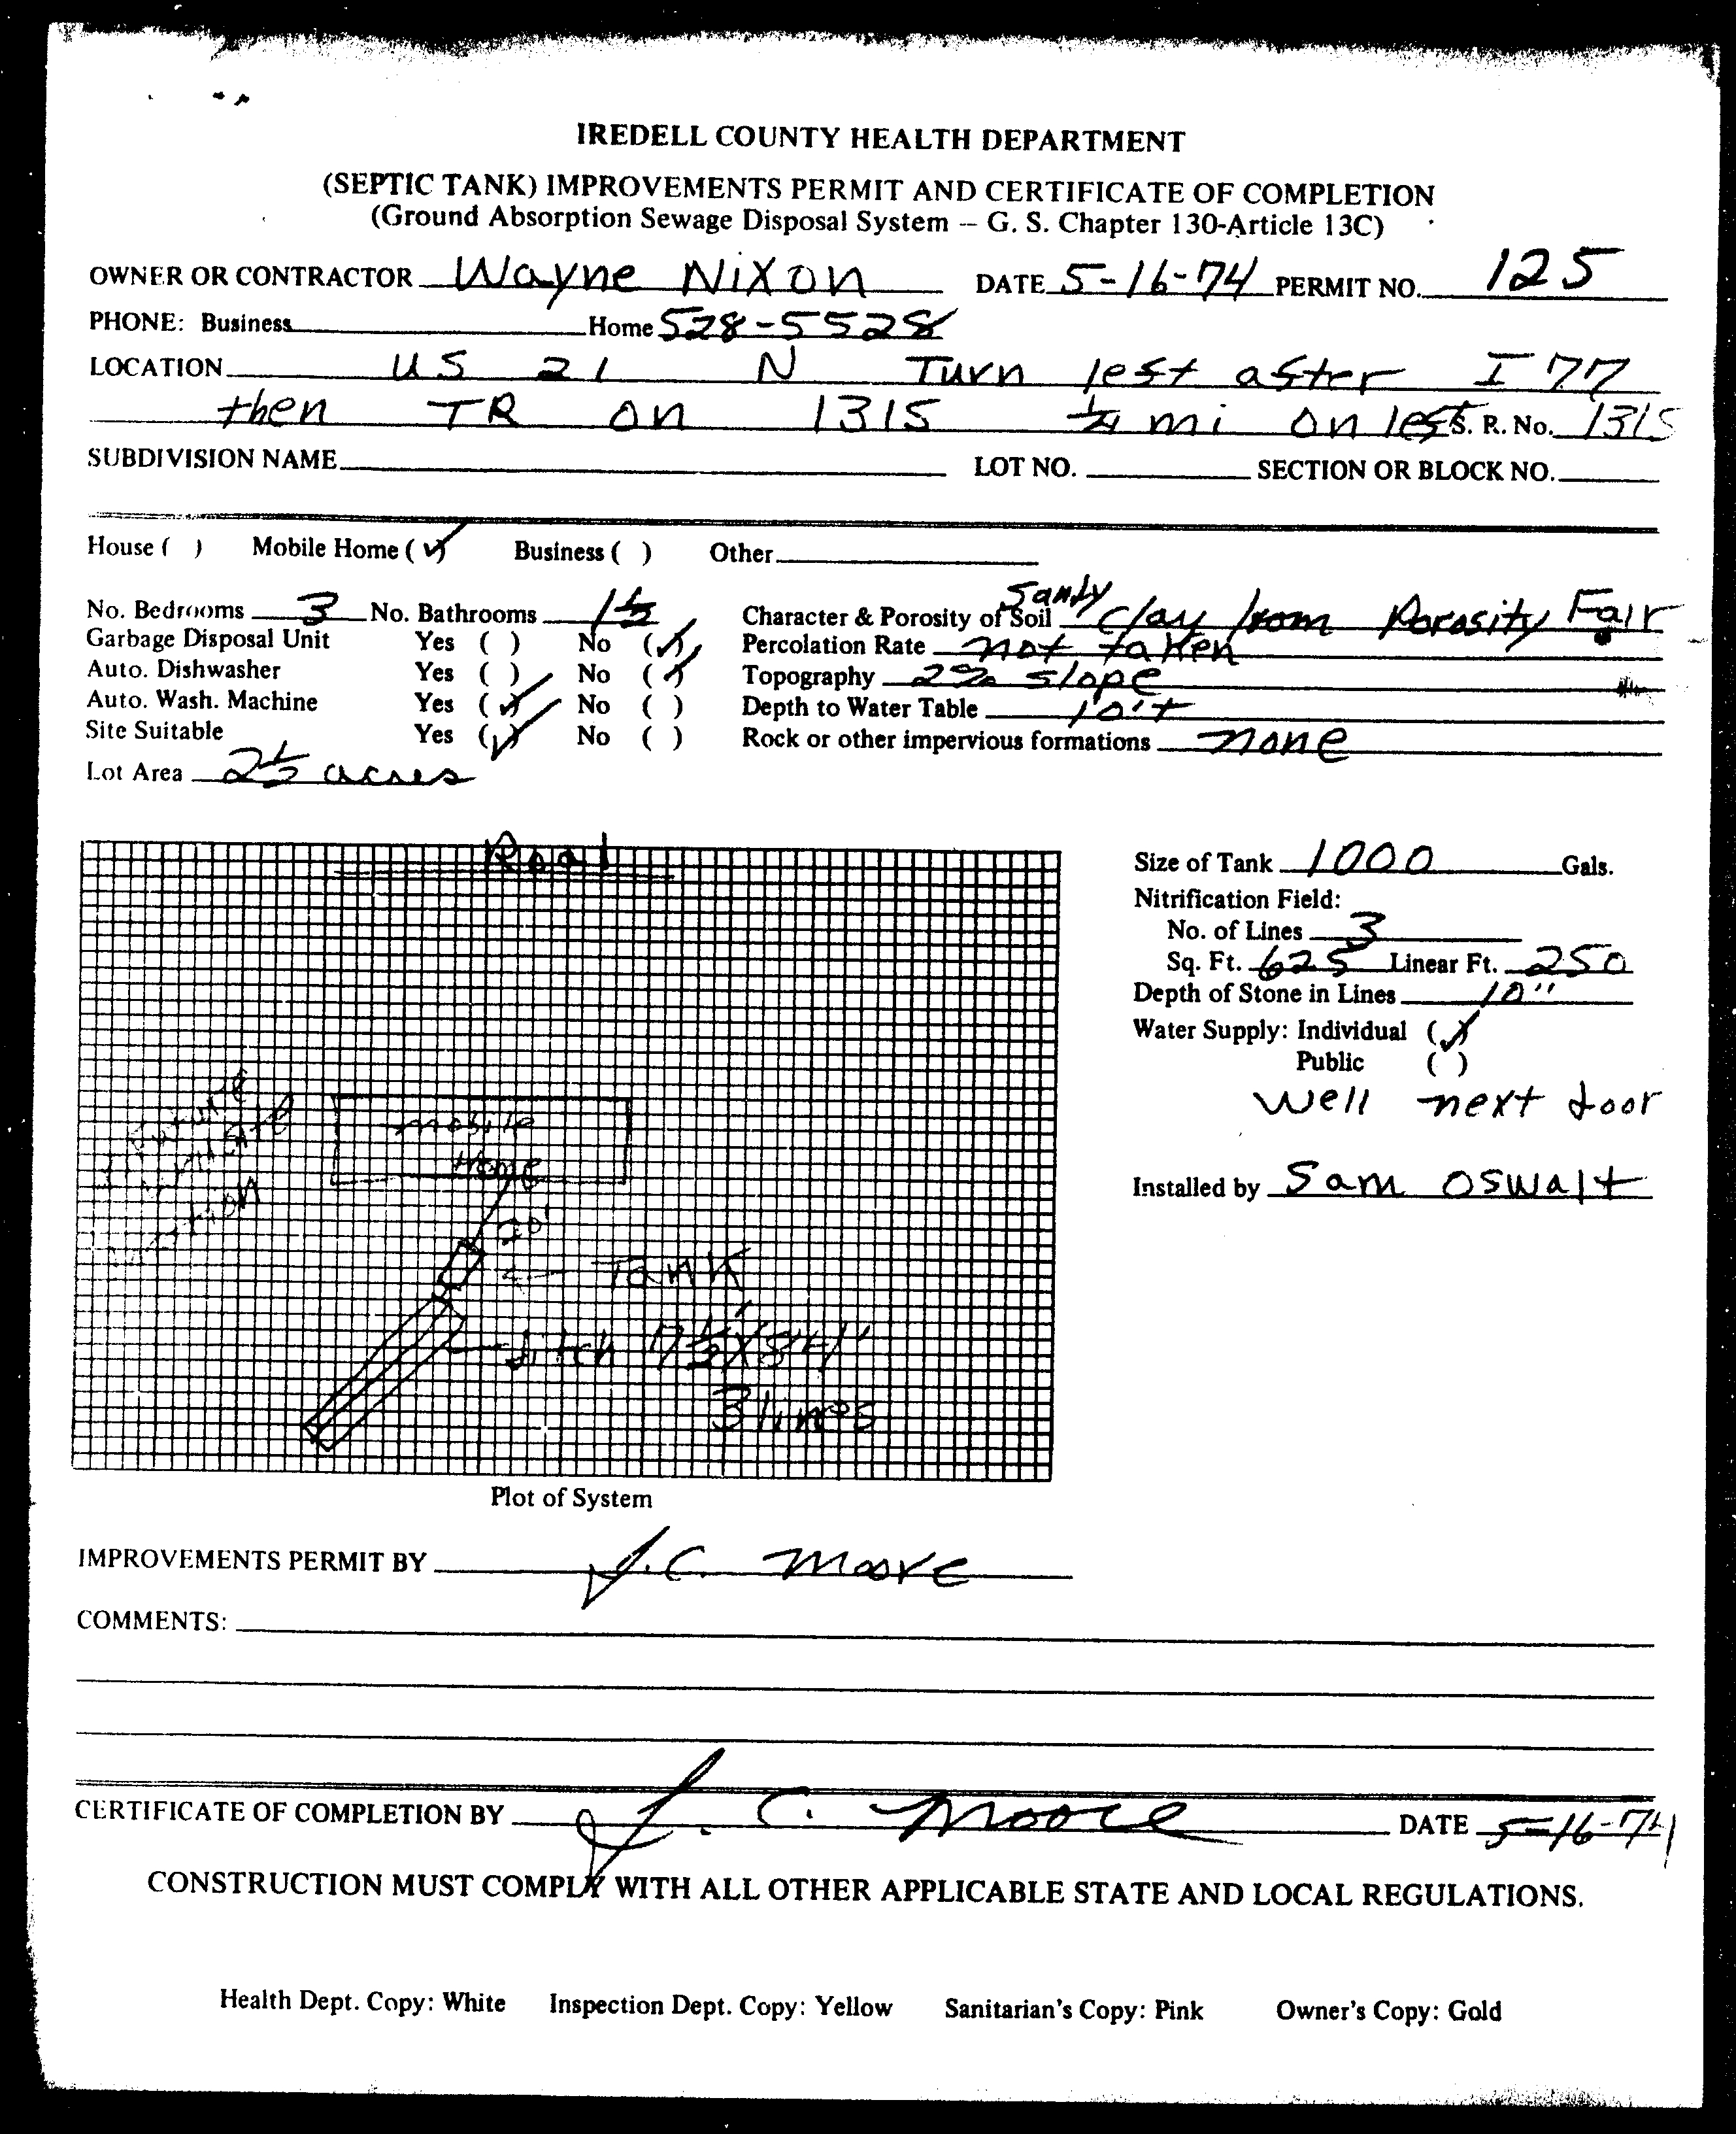 IREDELL COUNTY HEALTH DEPARTMENT
(SEPTIC TANK) IMPROVEMENTS PERMIT AND CERTIFICATE OF COMPLETION
(Ground Absorption Sewage Disposal System — G. S. Chapter 130-Article 13C)
OWNER OR CONTRACTOR Wayne Nixon DATE 5-16-74 PERMIT NO. 125
PHONE: Business Home 528-5528
LOCATION US 21 N Turn left after I 77
then TR on 1315 ¼ mi on left S. R. No. 1315
SUBDIVISION NAME LOT NO. SECTION OR BLOCK NO.
House ( ) Mobile Home (✓) Business ( ) Other
No. Bedrooms 3 No. Bathrooms 1½ Character & Porosity of Soil Sandy Clay loam Porosity Fair
Garbage Disposal Unit Yes ( ) No (✓) Percolation Rate not taken
Auto. Dishwasher Yes ( ) No (✓) Topography 2% slope
Auto. Wash. Machine Yes (✓) No ( ) Depth to Water Table 10'+
Site Suitable Yes (✓) No ( ) Rock or other impervious formations none
Lot Area 2½ acres
Road
Size of Tank 1000 Gals.
Nitrification Field:
No. of Lines 3
Sq. Ft. 625 Linear Ft. 250
Depth of Stone in Lines 10''
Water Supply: Individual (✓)
Public ( )
Well next door
Installed by Sam Oswalt
future
mobile
Home
20'
← Tank
ditch 7½'X84'
3 lines
Plot of System
IMPROVEMENTS PERMIT BY J.C. Moore
COMMENTS:
CERTIFICATE OF COMPLETION BY J. C. Moore DATE 5-16-74
CONSTRUCTION MUST COMPLY WITH ALL OTHER APPLICABLE STATE AND LOCAL REGULATIONS.
Health Dept. Copy: White Inspection Dept. Copy: Yellow Sanitarian's Copy: Pink Owner's Copy: Gold